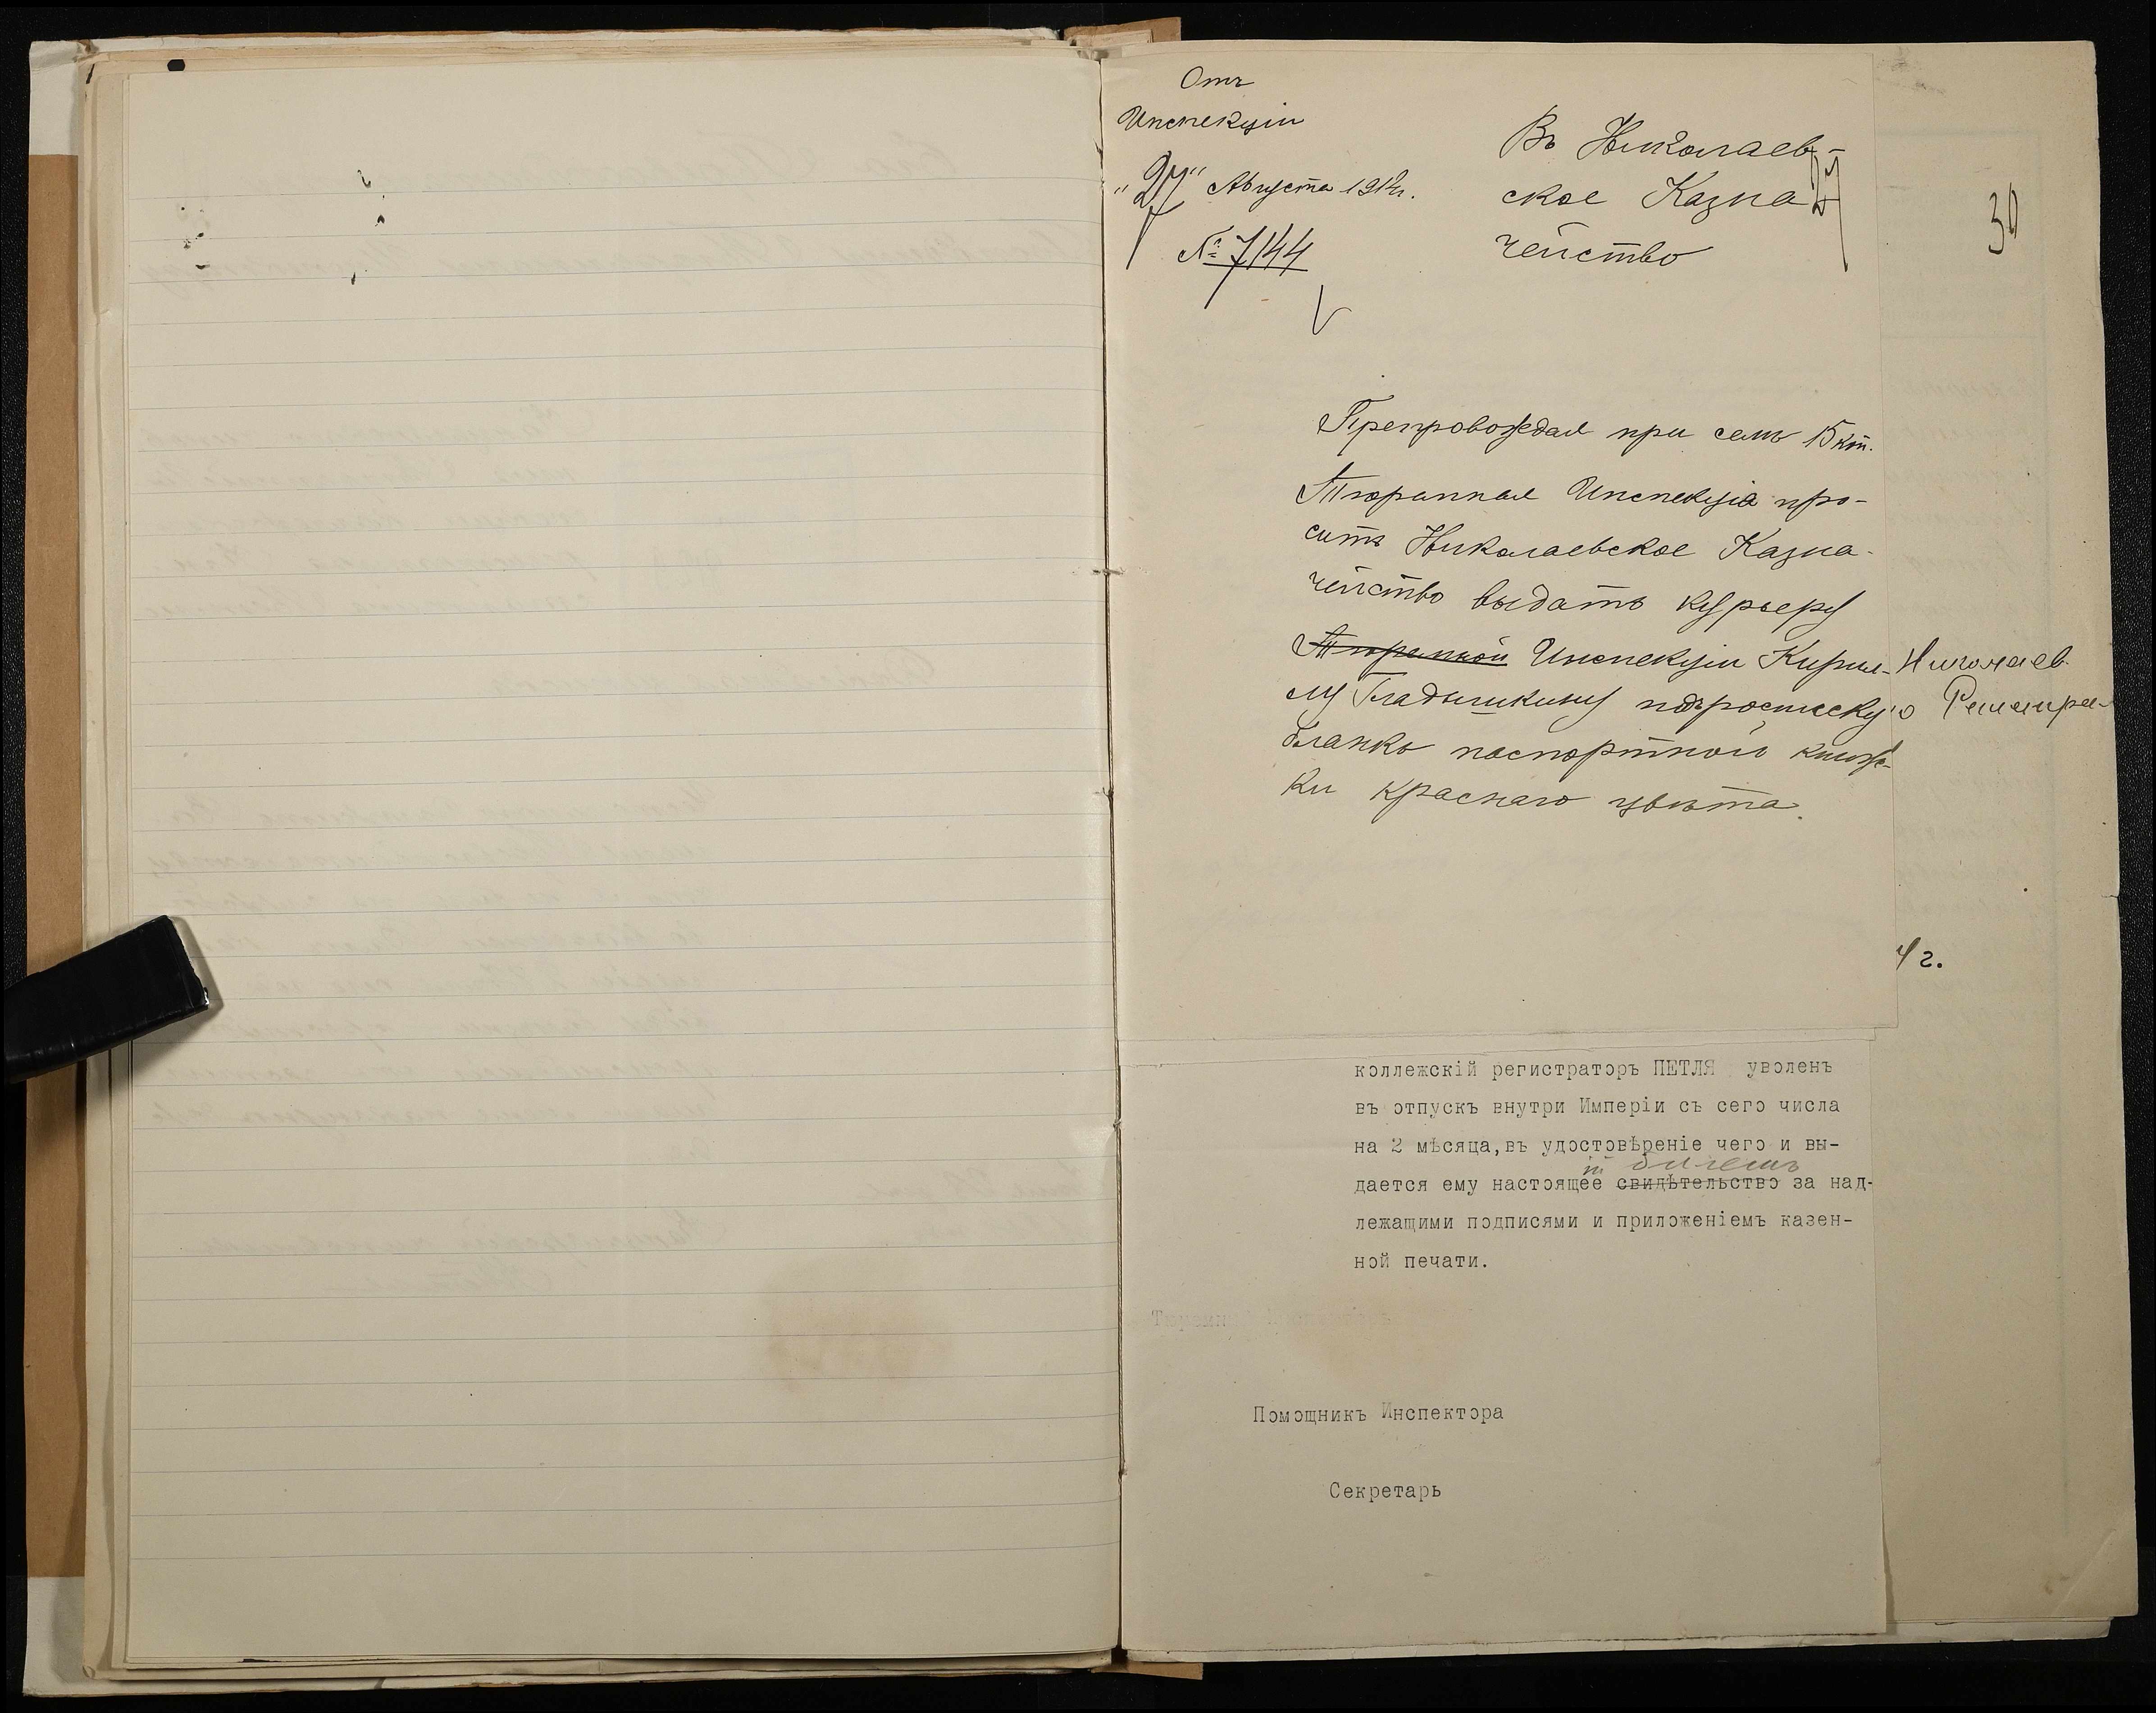 Отъ
Инспекціи
"27" Августа 191 г.
№ 7144
Въ Николаев-
ское Казна
чейство
30
Препровождая при семъ 15 коп.
Тюремная Инспекція про-
ситъ Николаевское Казна-
чейство выдать курьеру
Тюремной Инспекціи Кирил-
лу Гладышкину подъ росписку
бланкъ паспортной книж-
ки краснаго цвѣта.
Николаев
о
4 г.
коллежскій регистраторъ ПЕТЛЯ уволенъ
въ отпускъ внутри Имперіи съ сего числа
на 2 мѣсяца, въ удостовѣреніе чего и вы-
ій билетъ
дается ему настоящее свидѣтельство за над-
лежащими подписями и приложеніемъ казен-
ной печати.
Помощникъ Инспектора
Секретарь